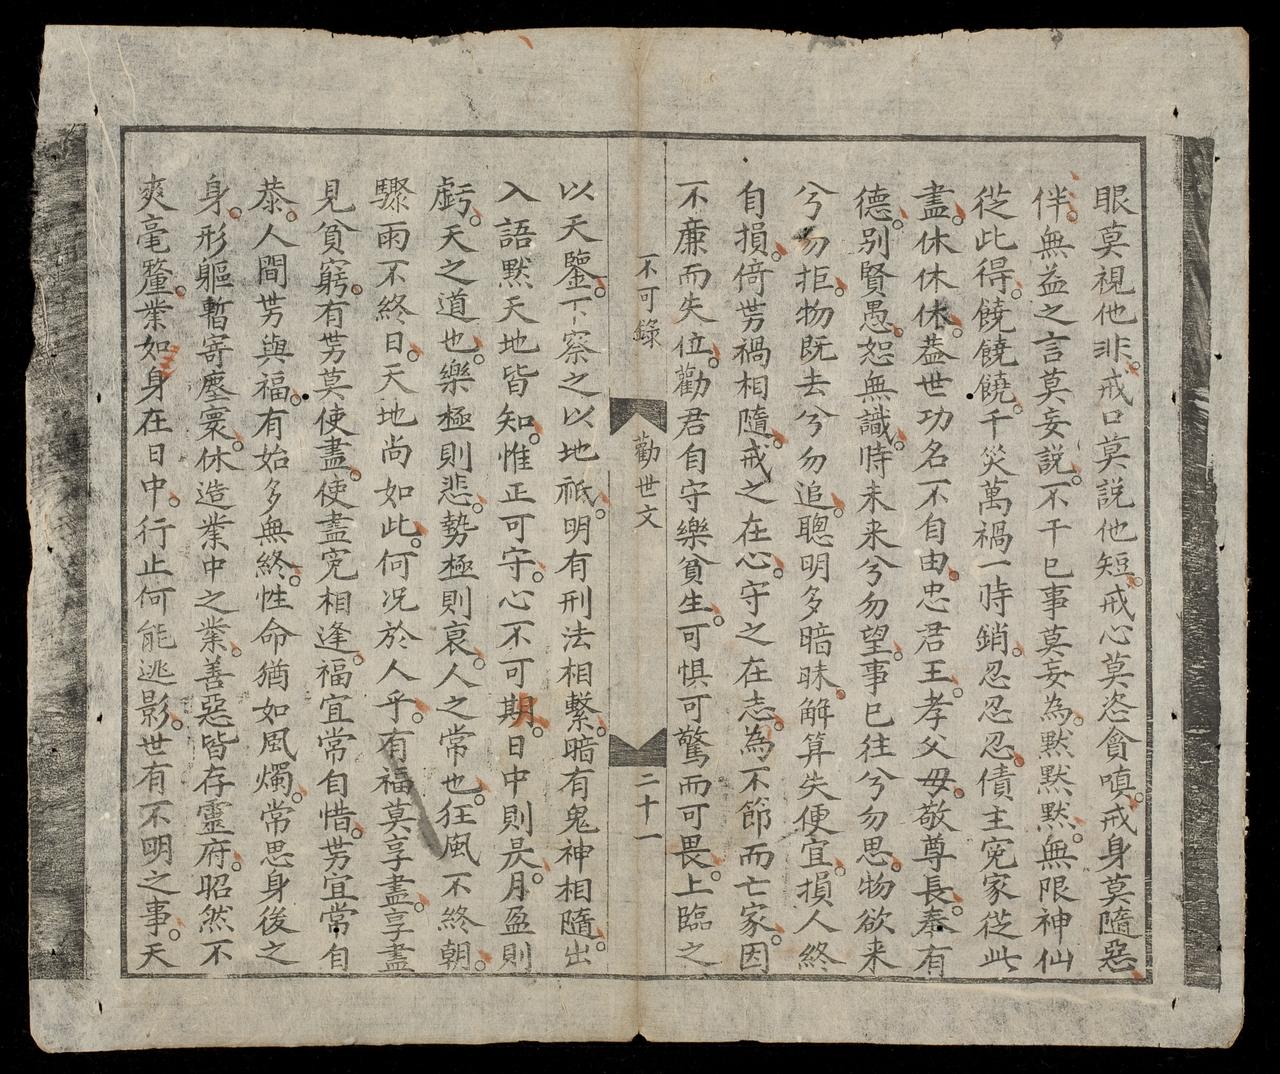 眼莫視他非。戒口莫説他短。戒心莫恣貪嗔。戒身莫隨惡
伴。無益之言莫妄説。不干已事莫妄為。默默默。無限神仙
從此得。饒饒饒。千災萬禍一時銷。忍忍忍。債主寃家從此
盡。休休休。葢世功名不自由。忠君王。孝父母。敬尊長。奉有
德。别賢愚。恕無識。時未来兮勿望。事已往兮勿思。物欲来
兮勿拒。物既去兮勿追。聰明多暗昧。觧算失便宜。損人終
自損。倚势禍相隨。戒之在心。守之在志。為不節而亡家。因
不亷而失位。勸君自守樂貧生。可惧可驚而可畏。上臨之
不可錄
勸世文
二十一
以天鑒。下察之以地祇。明有刑法相繫。暗有鬼神相隨。出
入語默天地皆知。惟正可守。心不可期。日中則昃。月盈則
虧。天之道也。樂極則悲。勢極則哀。人之常也。狂風不終朝。
驟雨不終日。天地尚如此。何况於人乎。有福莫享盡。享盡
見貧窮。有势莫使盡。使盡寃相逢。福宜常自惜。势宜常自
恭。人間势與福。有始多無終。性命猶如風燭。常思身後之
身。形軀暫寄塵寰。休造業中之業。善惡皆存靈府。昭然不
爽毫釐。業如身在日中。行止何能逃影。世有不明之事。天